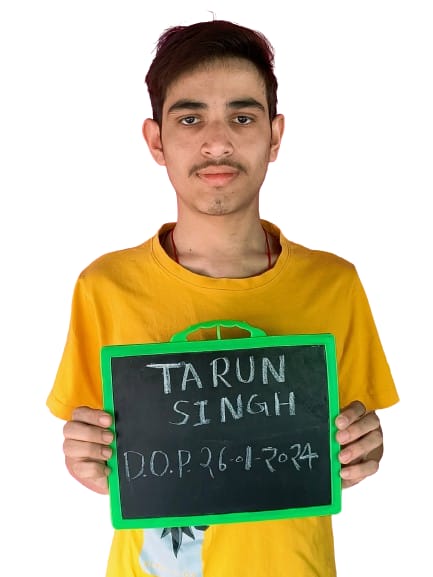 TARUN
SINGH
D.O.P. 26-01-2024